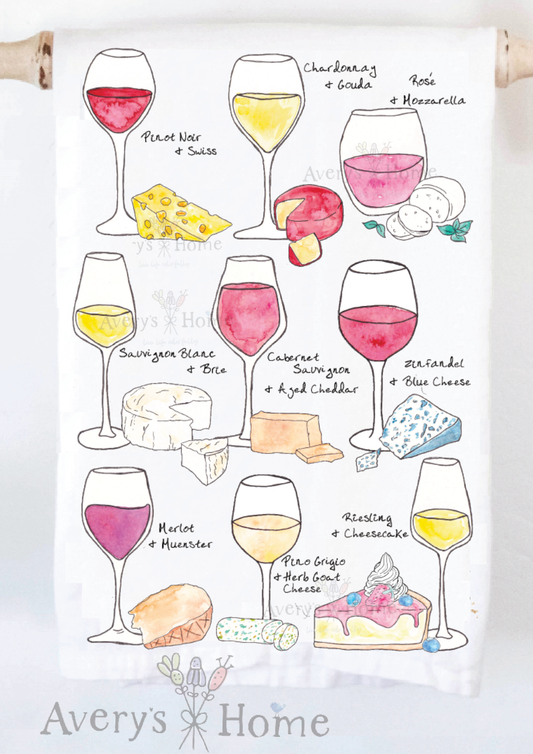 Pinot Noir
& Swiss
Chardonnay
& Gouda
Rosé
& Mozzarella
Avery's Home
Avery's Home
Avery's Home
Sauvignon Blanc
& Brie
Cabernet
Sauvignon
& Aged Cheddar
Zinfandel
& Blue Cheese
Merlot
& Muenster
Pino Grigio
& Herb Goat
Cheese
Riesling
& Cheesecake
Avery's Home
Avery's Home